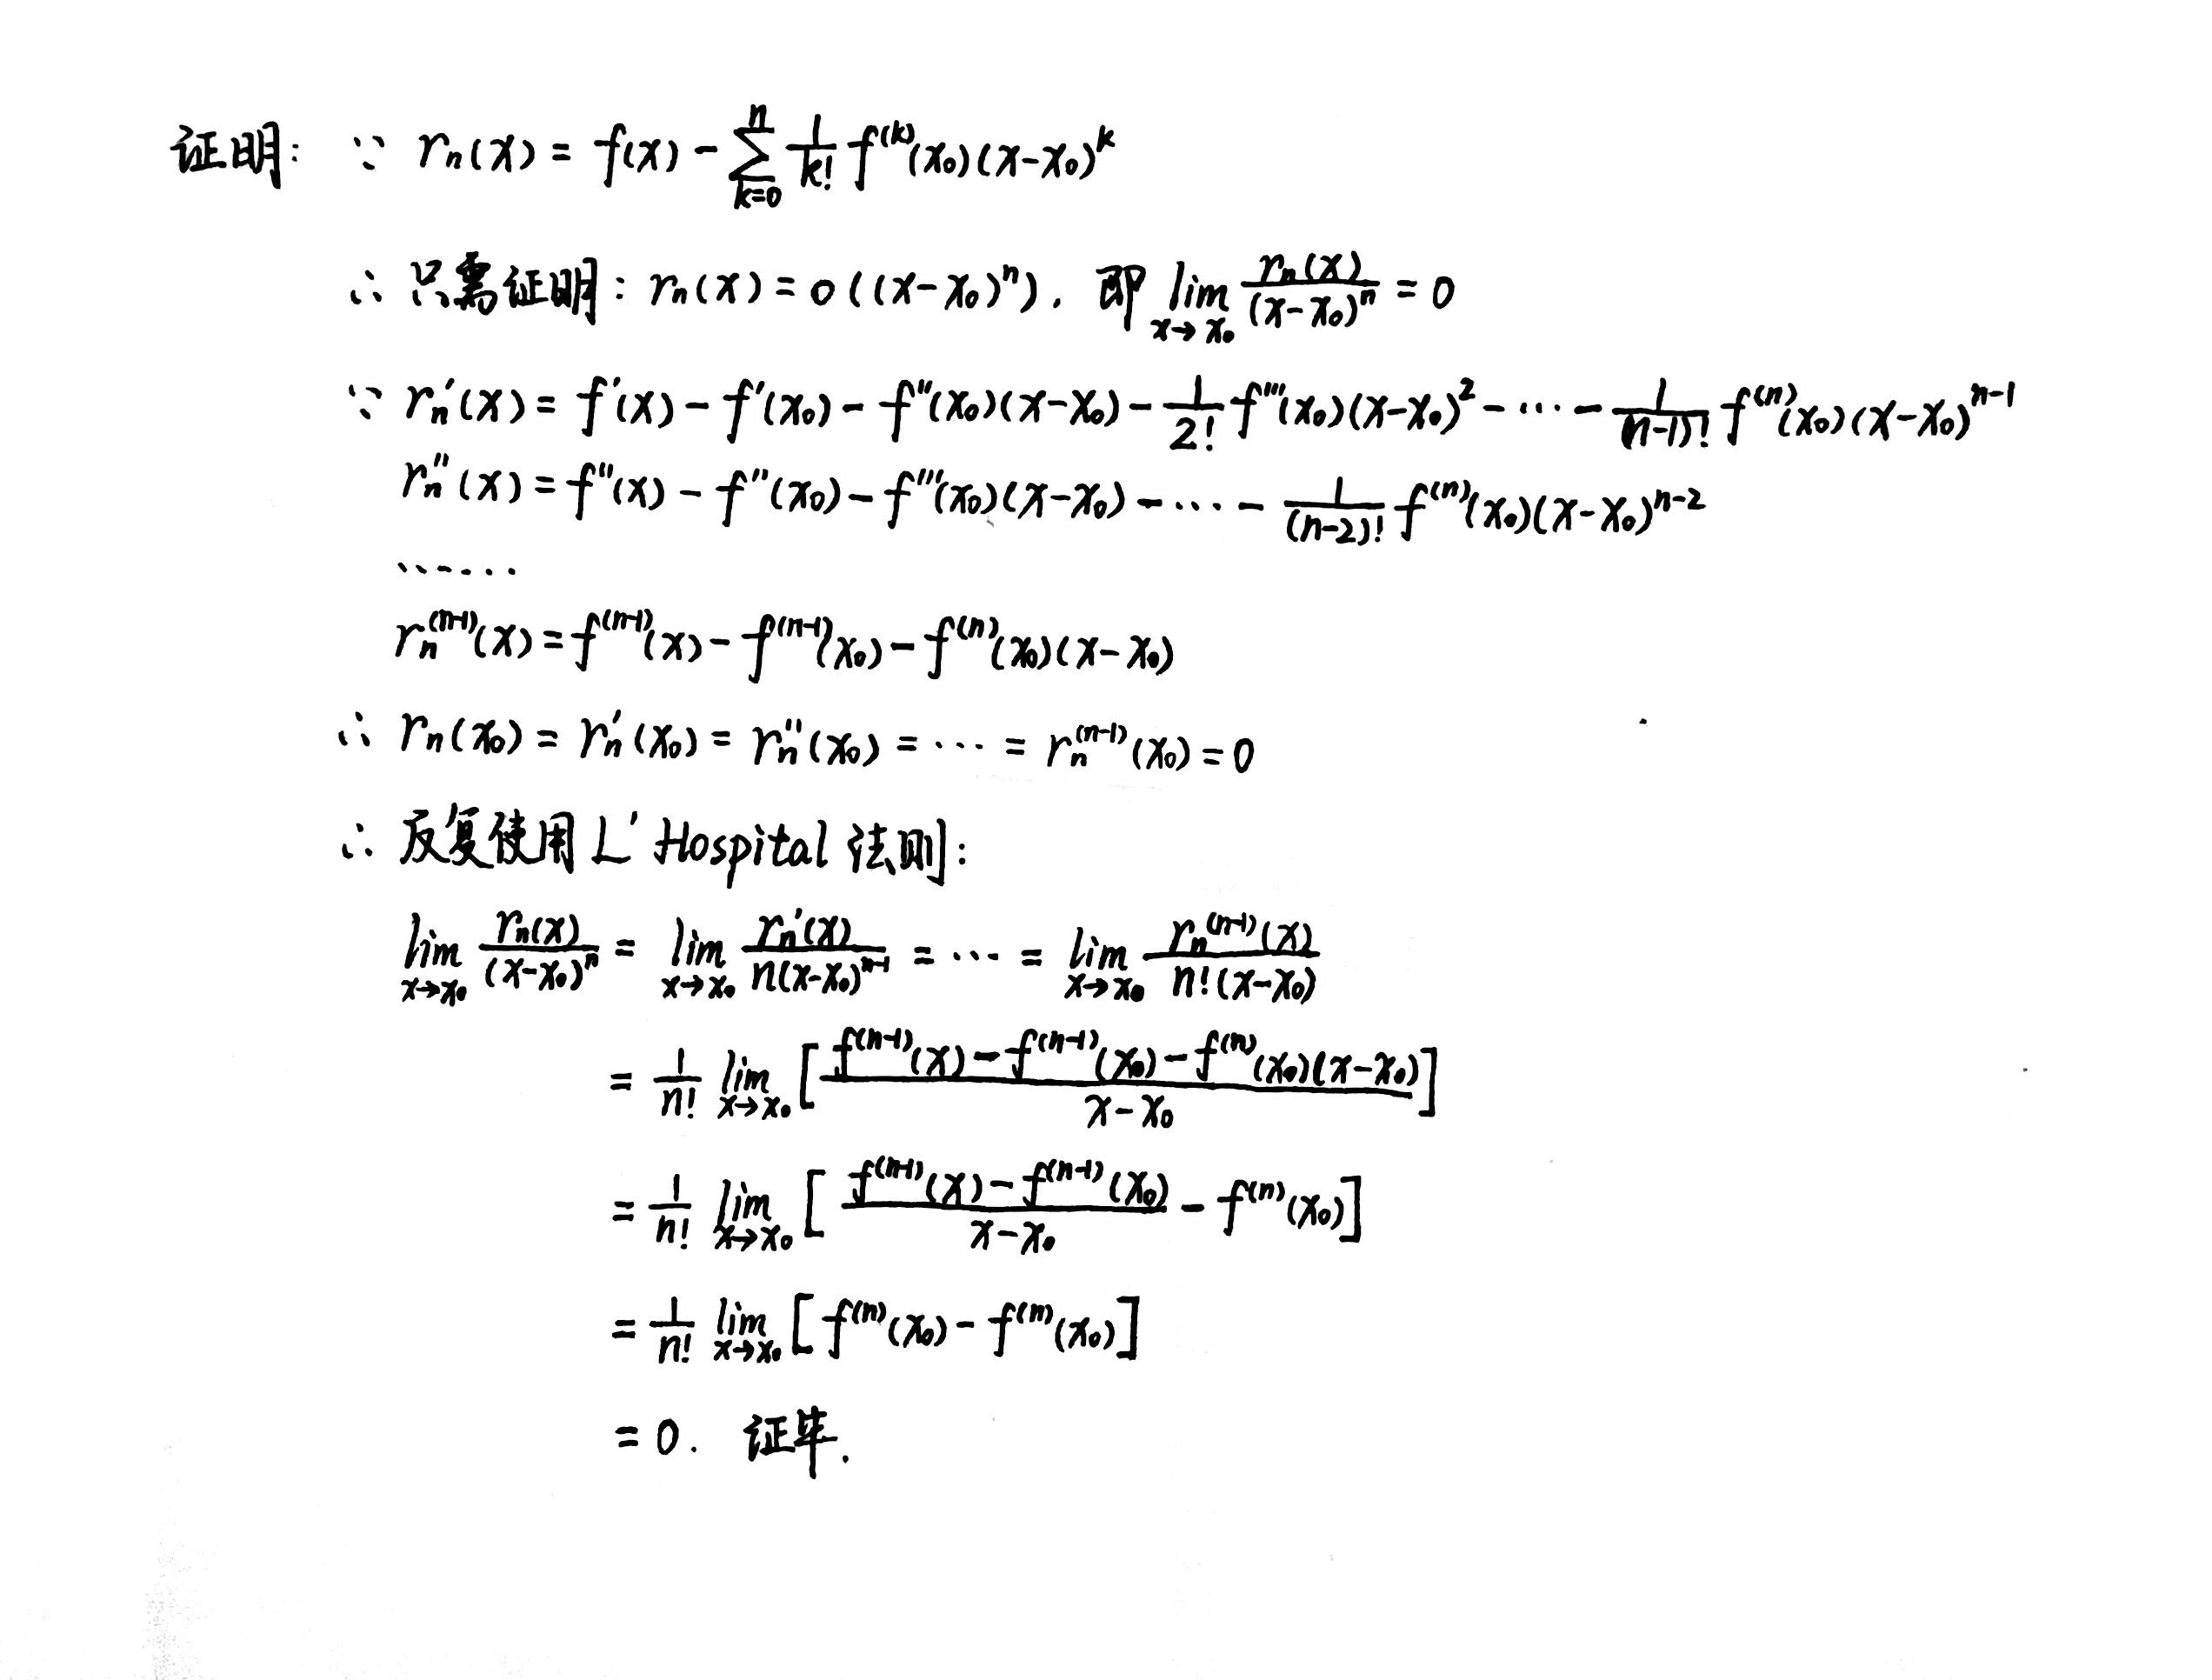 证明: ∵ rₙ(x) = f(x) - \sum_{k=0}^{n} \frac{1}{k!} f^{(k)}(x₀)(x-x₀)^k
∴ 只需证明: rₙ(x) = o((x-x₀)^n). 即 \lim_{x→x₀} \frac{rₙ(x)}{(x-x₀)^n} = 0
∵ rₙ'(x) = f'(x) - f'(x₀) - f''(x₀)(x-x₀) - \frac{1}{2!} f'''(x₀)(x-x₀)^2 - ⋯ - \frac{1}{(n-1)!} f^{(n)}(x₀)(x-x₀)^{n-1}
rₙ''(x) = f''(x) - f''(x₀) - f'''(x₀)(x-x₀) - ⋯ - \frac{1}{(n-2)!} f^{(n)}(x₀)(x-x₀)^{n-2}
......
rₙ^{(n-1)}(x) = f^{(n-1)}(x) - f^{(n-1)}(x₀) - f^{(n)}(x₀)(x-x₀)
∴ rₙ(x₀) = rₙ'(x₀) = rₙ''(x₀) = ⋯ = rₙ^{(n-1)}(x₀) = 0
∴ 反复使用 L'Hospital 法则:
\lim_{x→x₀} \frac{rₙ(x)}{(x-x₀)^n} = \lim_{x→x₀} \frac{rₙ'(x)}{n(x-x₀)^{n-1}} = ⋯ = \lim_{x→x₀} \frac{rₙ^{(n-1)}(x)}{n!(x-x₀)}
= \frac{1}{n!} \lim_{x→x₀} [\frac{f^{(n-1)}(x) - f^{(n-1)}(x₀) - f^{(n)}(x₀)(x-x₀)}{x-x₀}]
= \frac{1}{n!} \lim_{x→x₀} [\frac{f^{(n-1)}(x) - f^{(n-1)}(x₀)}{x-x₀} - f^{(n)}(x₀)]
= \frac{1}{n!} \lim_{x→x₀} [f^{(n)}(x₀) - f^{(n)}(x₀)]
= 0. 证毕.